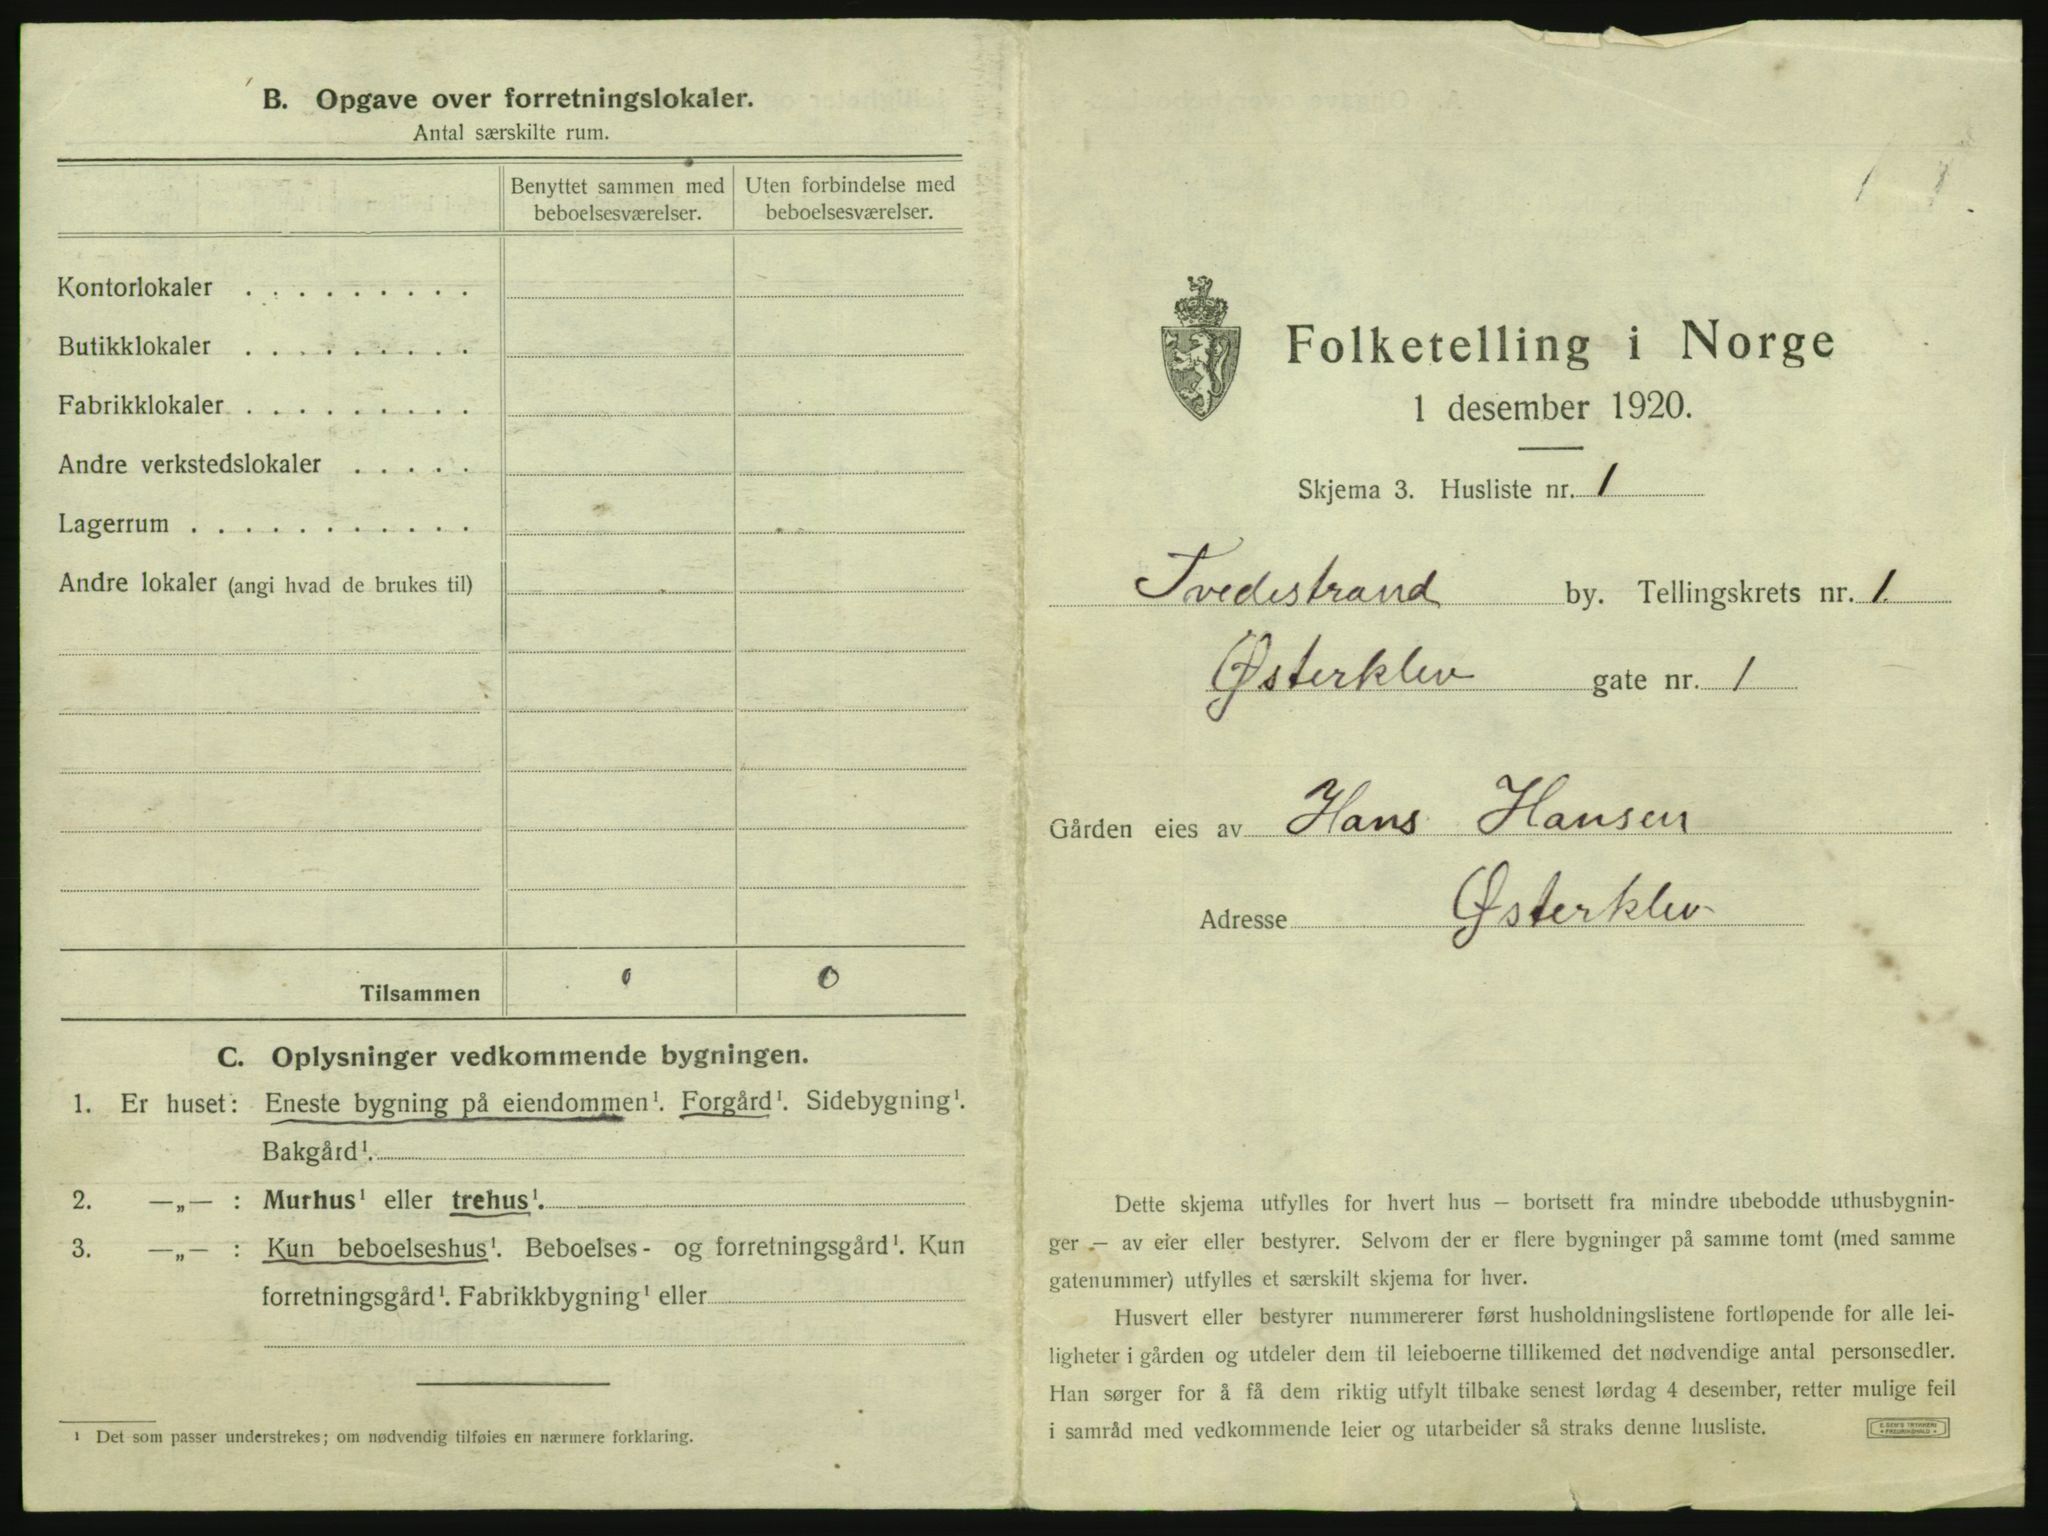 B. Opgave over forretningslokaler.
Antal særskilte rum.
Benyttet sammen med beboelsesværelser.
Uten forbindelse med beboelsesværelser.
Kontorlokaler . . . . . . . . .
Butikklokaler . . . . . . . . .
Fabrikklokaler . . . . . . . . .
Andre verkstedslokaler . . . . .
Lagerrum . . . . . . . . . . .
Andre lokaler (angi hvad de brukes til)
Tilsammen 0 0
C. Oplysninger vedkommende bygningen.
1. Er huset: Eneste bygning på eiendommen¹. Forgård¹. Sidebygning¹.
Bakgård¹.
2. —„— : Murhus¹ eller trehus¹.
3. —„— : Kun beboelseshus¹. Beboelses- og forretningsgård¹. Kun
forretningsgård¹. Fabrikkbygning¹ eller
¹ Det som passer understrekes; om nødvendig tilføies en nærmere forklaring.
1 1
Folketelling i Norge
1 desember 1920.
Skjema 3. Husliste nr. 1
Tvedestrand by. Tellingskrets nr. 1.
Østerklev gate nr. 1
Gården eies av Hans Hansen
Adresse Østerklev
Dette skjema utfylles for hvert hus — bortsett fra mindre ubebodde uthusbygnin-
ger — av eier eller bestyrer. Selvom der er flere bygninger på samme tomt (med samme
gatenummer) utfylles et særskilt skjema for hver.
Husvert eller bestyrer nummererer først husholdningslistene fortløpende for alle lei-
ligheter i gården og utdeler dem til leieboerne tillikemed det nødvendige antal personsedler.
Han sørger for å få dem riktig utfylt tilbake senest lørdag 4 desember, retter mulige feil
i samråd med vedkommende leier og utarbeider så straks denne husliste.
E. SEM'S TRYKKERI
FREDRIKSHALD